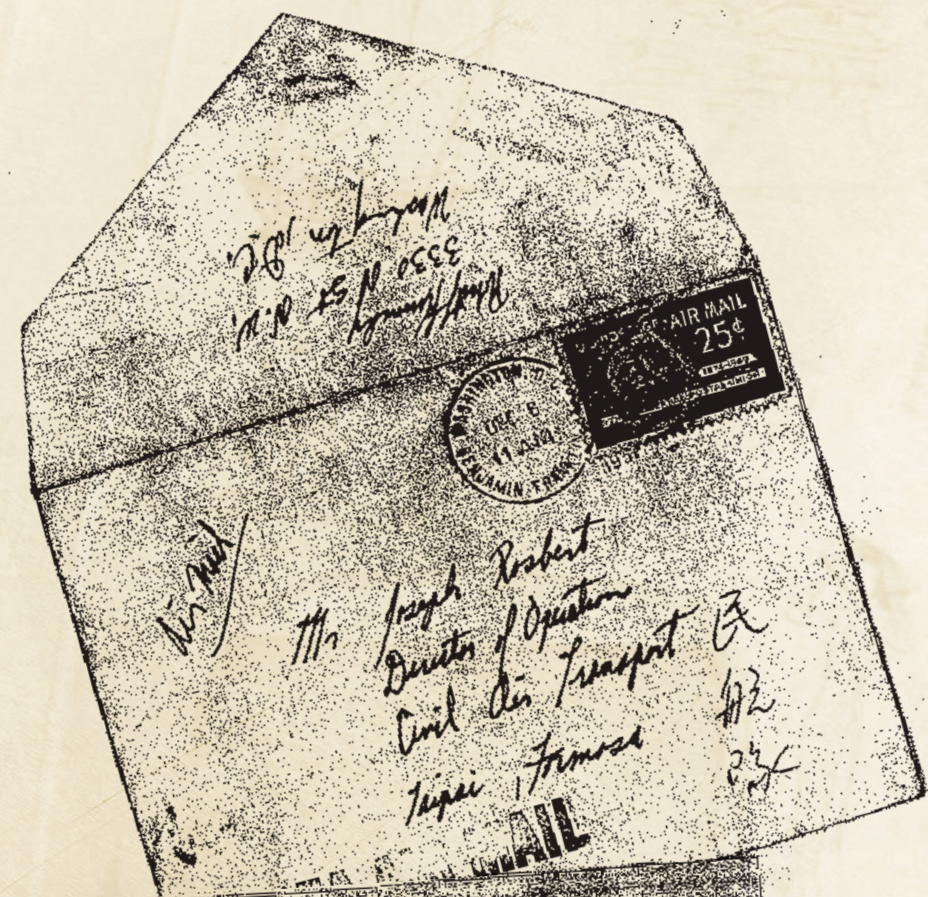 3330 N St. N.W.
Washington, D.C.
AIR MAIL
25¢
WASHINGTON D.C.
DEC 6
11 AM
BENJAMIN FRANK
195
Air Mail
Mr Joseph Rosbert
Director of Operation
Civil Air Transport 民
Taipei, Formosa
AIL